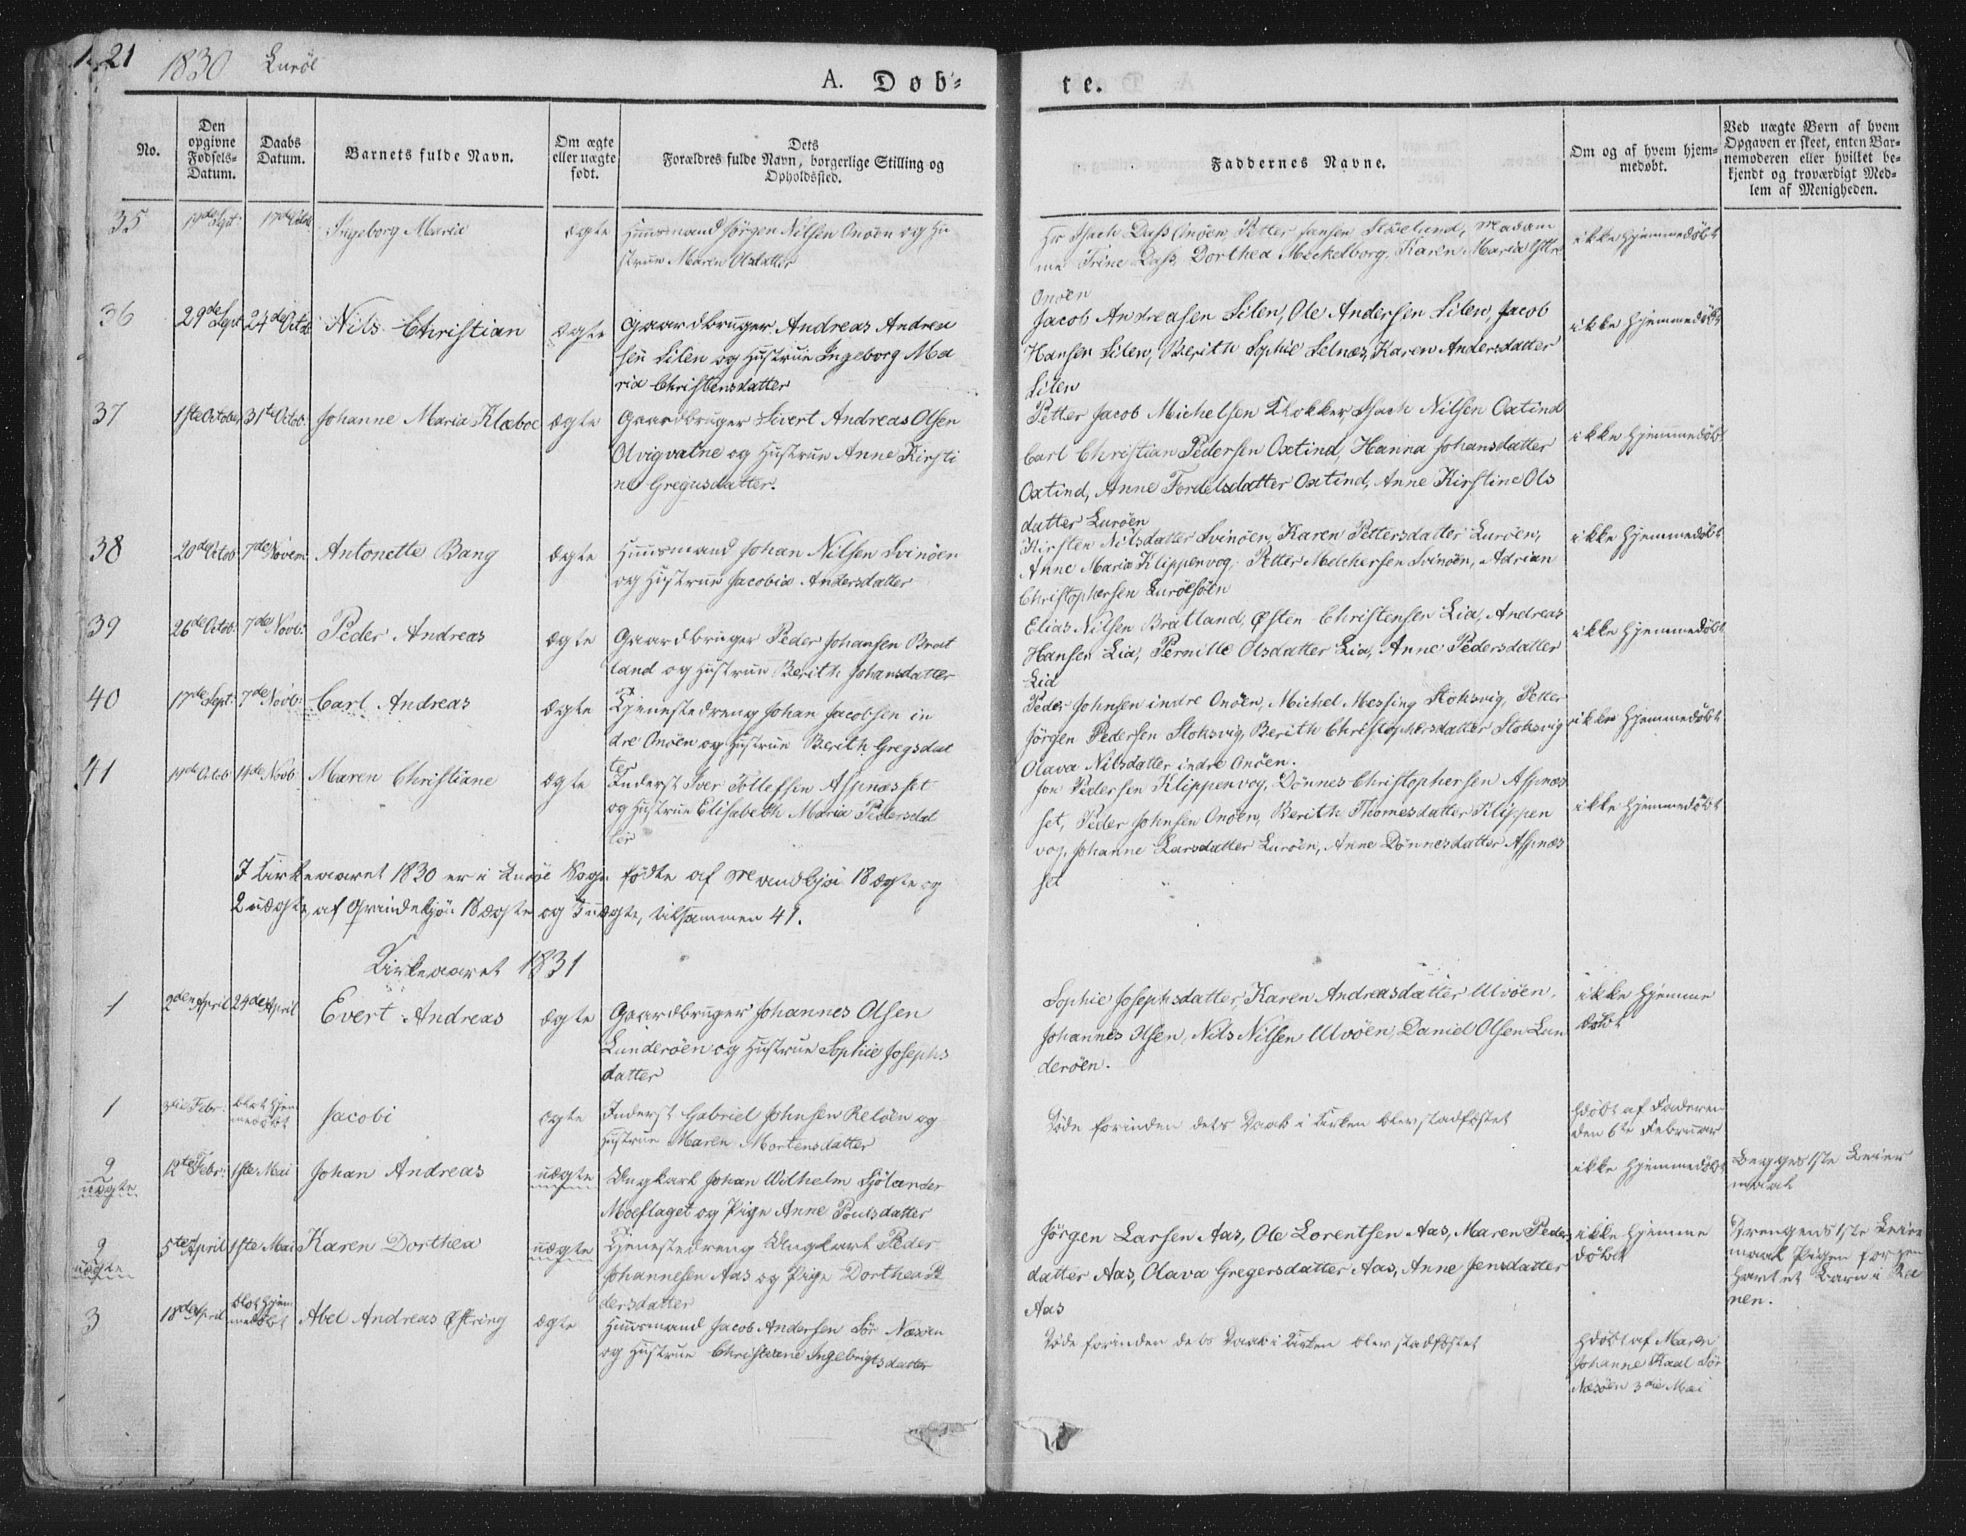 21
1830 Lurøe
A. Døb-
te.
No.
Den opgivne Fødsels-Datum.
Daabs Datum.
Barnets fulde Navn.
Om ægte eller uægte født.
Dets Forældres fulde Navn, borgerlige Stilling og Opholdssted.
Faddernes Navne.
Om og af hvem hjem-
medøbt.
Ved uægte Børn af hvem
Opgaven er skeet, enten Bar-
nemoderen eller hvilket be-
kjendt og troværdigt Med-
lem af Menigheden.
35 Ingeborg Maria ægte Huusmand Jørgen Nilsen Onøen og Hu
strue Maren Olsdatter
Hr Isach Dass Onøen, Petter Jansen Madam
Trine Dass, Dorthea Meckelborg, Karen Maria
Onøen
ikke hjemmedøbt
36 29de Sept 24de Octob Nils Christian ægte Gaardbruger Andreas Andrea
sen Silen og Hustrue Ingeborg Ma
ria Christensdatter
Jacob Andreasen Silen, Ole Andersen Silen, Jacob
Hansen Silen, Berith Sophie Selnæs, Karen Andersdatter
Silen
ikke hjemmedøbt
37 1ste October 31te Octob. Johanne Maria Klæboe ægte Gaardbruger Sivert Andreas Olsen
Olvigvatne og Hustrue Anne Kirsti
ne Gregusdatter.
Petter Jacob Michelsen Klokker, Isach Nilsen Oxtind
Carl Christian Pedersen Oxtind, Hanna Johansdatter
Oxtind, Anne Fordelsdatter Oxtind, Anne Kirstine Ols
datter Lurøen
ikke hjemmedøbt
38 20de Octob 7de Novem Antonette Bang ægte Huusmand Johan Nilsen Svinøen
og Hustrue Jacobia Andersdatter
Kirsten Nilsdatter Svinøen, Karen Pettersdatter Lurøen,
Anne Maria Klippenvog, Petter Melchersen Svinøen, Adrian
Christophersen Lurøesøen
ikke hjemmedøbt
39 26de Octob. 7de Novb: Peder Andreas ægte Gaardbruger Peder Johansen Brat
land og Hustrue Berith Johansdatter
Elias Nilsen Bratland, Østen Christensen Lia, Andreas
Hansen Lia, Pernille Olsdatter Lia, Anne Pedersdatter
Lia
ikke hjemmedøbt
40 17de Sept: 7de Novb: Carl Andreas ægte Tjenestedreng Johan Jacobsen in
dre Onøen og Hustrue Berith Gregsdat
ter
Peder Johnsen indre Onøen, Michel Messing Stoksvig, Petter
Jørgen Pedersen Stoksvig, Berith Christophersdatter Stoksvig
Olava Nilsdatter indre Onøen.
ikke hjemmedøbt
41 14de Novb Maren Christiane ægte Inderst Iver Tollefsen Aspnæsset
og Hustrue Elisabeth Maria Pedersdat
ter
Jon Pedersen Klippenvog, Dønnes Christophersen Aspnæs
set, Peder Johnsen Onøen, Berith Thomesdatter Klippen
vog, Johanne Larsdatter Lurøen, Anne Dønnesdatter Aspnæs
set
ikke hjemmedøbt
I Kirkeaaret 1830 er i Lurøe Sogn fødte af Mandkjøn 18 ægte og
2 uægte, af Qvindekjøn 18 ægte og 3 uægte, tilsammen 41.
Kirkeaaret 1831
1 2den April 24de April Evert Andreas ægte Gaardbruger Johannes Olsen
Lunderøen og Hustrue Sophie Josephs
datter
Sophie Josephsdatter, Karen Andreasdatter Ulvøen,
Johannes Olsen, Nils Nilsen Ulvøen, Daniel Olsen Lun
derøen.
ikke hjemme
døbt
1 3die Febr. blot hjem
medøbt Jacobi ægte Inderst Gabriel Johnsen Reløen og
Hustrue Maren Mortensdatter
Døde forinden dets Daab i Kirken blev stadfæstet
hdøbt af Faderen
den 6te Februar
2 uægte 12te Febr. 1ste Mai Johan Andreas uægte Ungkarl Johan Wilhelm Sjølander
Moeflaget og Pige Anne Poulsdatter
ikke hjemmedøbt
Begges 1ste Leier
maal
2 uægte 5te April 1ste Mai Karen Dorthea uægte Tjenestedreng Ungkarl Peder
Johannesen Aas og Pige Dorthea Pe
dersdatter
Jørgen Larsen Aas, Ole Lorentsen Aas, Maren Peder
datter Aas, Olava Gregersdatter Aas, Anne Jensdatter
Aas
ikke hjemme
døbt
Drengens 1ste Leier
maal Pigen før
havt et Barn i Ra
nen.
3 18de April blot hjem
medøbt Abel Andreas Østring ægte Huusmand Jacob Andersen Sør Næsøen
og Hustrue Christianne Ingebrigtsdatter
Døde forinden dets Daab i Kirken blev stadfæstet
hdøbt af Maren
Johanne Kaal Sør
Næsøen 3die Mai